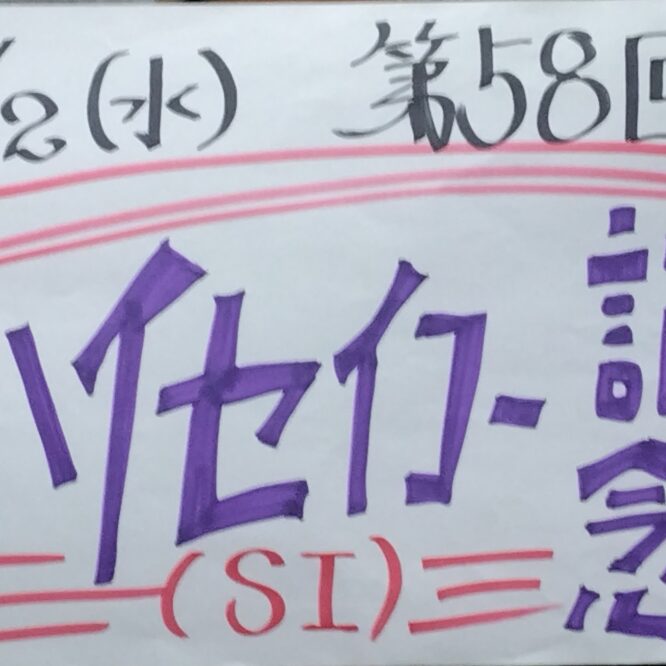 /2(水) 第58回
ハイセイコー記念
(SI)